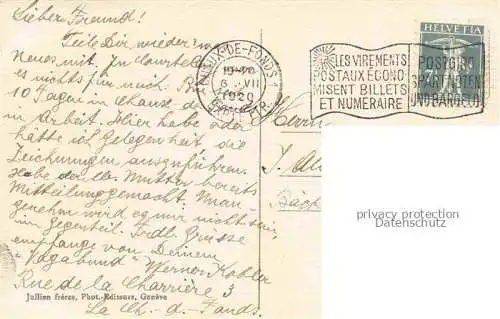 Lieber Freund!
Teile Dir wieder
Neues mit. In Courtelle
es nichts für mich. Bin
10 Tagen in Chaux de
in Arbeit. Hier habe
hätte ich Gelegenheit, die
Zeichnungen auszuführen.
Habe der lb. Mutter bereits
Mitteilung gemacht. Unan
genehm wird es mir nicht sein,
im Gegenteil. Frdl. Grüsse
empfange von Deinem
"Vagabund" Werner Kohler
Rue de la Charrière 3
La Ch.-d.-Fonds.
Jullien frères, Phot.-Editeurs, Genève
X-DE-FONDS 1
VII
1920
LES VIREMENTS
POSTAUX ÉCONO-
MISENT BILLETS
ET NUMÉRAIRE
POSTGIRO
SPART NOTEN
UND BARGELD
HELVETIA
Herrn
J.
Bäch
privacy protection
Datenschutz